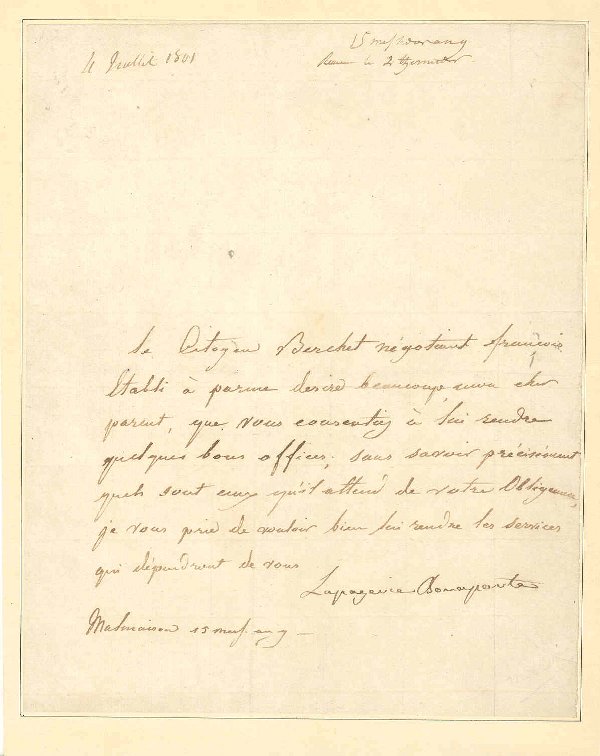 4 Juillet 1801
15 messidor an 9
le 2 thermidor
le Citoyen Berchet négotiant françois
Etabli à parme desire beaucoup, mon cher
parent, que vous consentiez à lui rendre
quelques bons offices; sans savoir précisément
quels sont ceux qu'il attend de votre Obligeance,
je vous prie de vouloir bien lui rendre les services
qui dépendront de vous
Lapagerie Bonaparte
Malmaison 15 mess. an 9 —